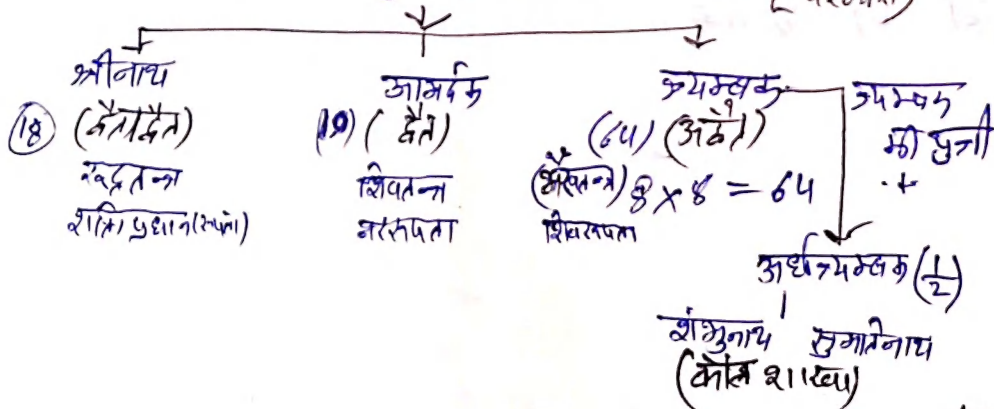 श्रीनाथ
(18) (द्वैताद्वैत)
रुद्रतन्त्र
शक्ति प्रधान(रूपता)
आमर्दक
(10) (द्वैत)
शिवतन्त्र
नररूपता
त्र्यम्बक
(64) (अद्वैत)
(भैरवतन्त्र) 8 x 8 = 64
शिवरूपता
त्र्यम्बक
की पुत्री
अर्धत्र्यम्बक (1/2)
शंभुनाथ सुमतिनाथ
(कौल शाखा)